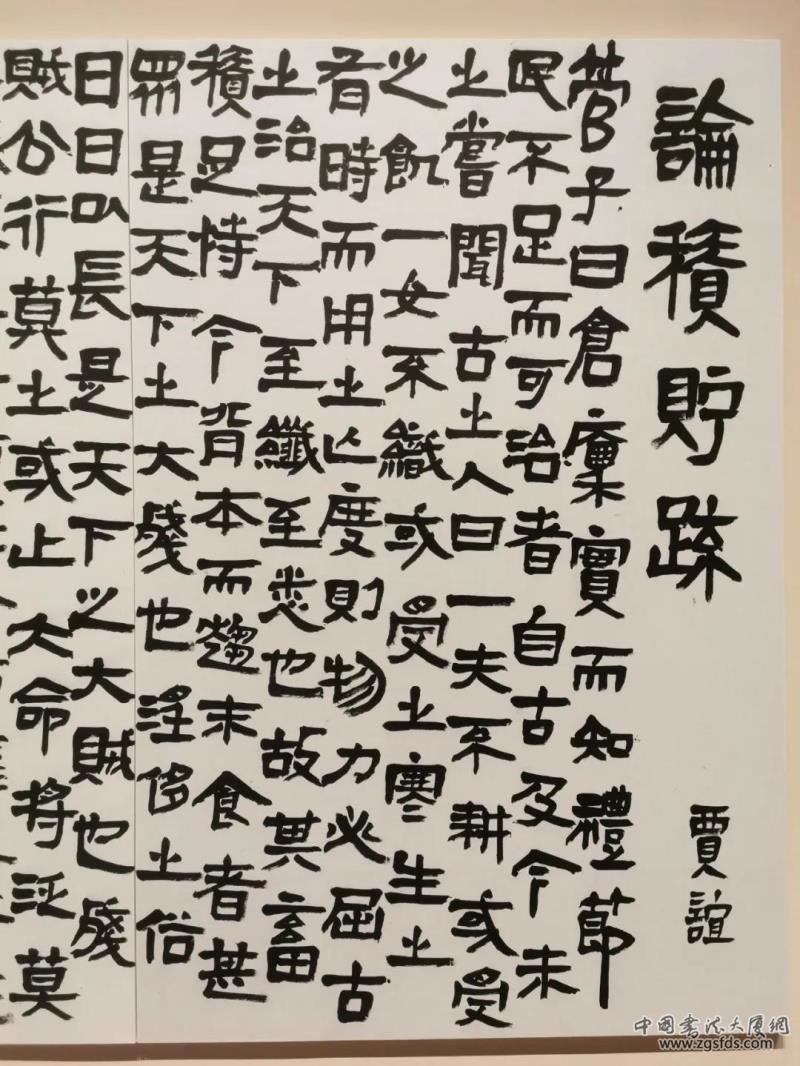 論積貯疏
賈誼
管子曰倉廩實而知禮節
民不足而可治者自古及今未
之嘗聞古之人曰一夫不耕或受
之飢一女不織或受之寒生之
者時而用之亡度則物力必屈古
之治天下至纖至悉也故其畜
積足恃今背本而趨末食者甚
眾是天下之大殘也淫侈之俗
日日以長是天下之大賊也殘
賊公行莫之或止大命將泛莫
中國書法大廈網
www.zgsfds.com